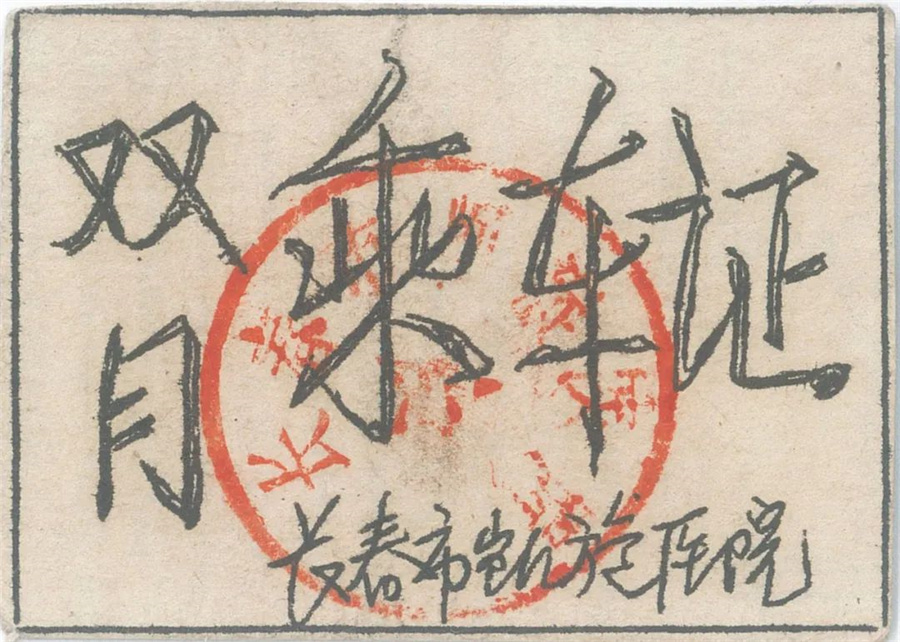 双月
乘车证
长春市凯旋医院